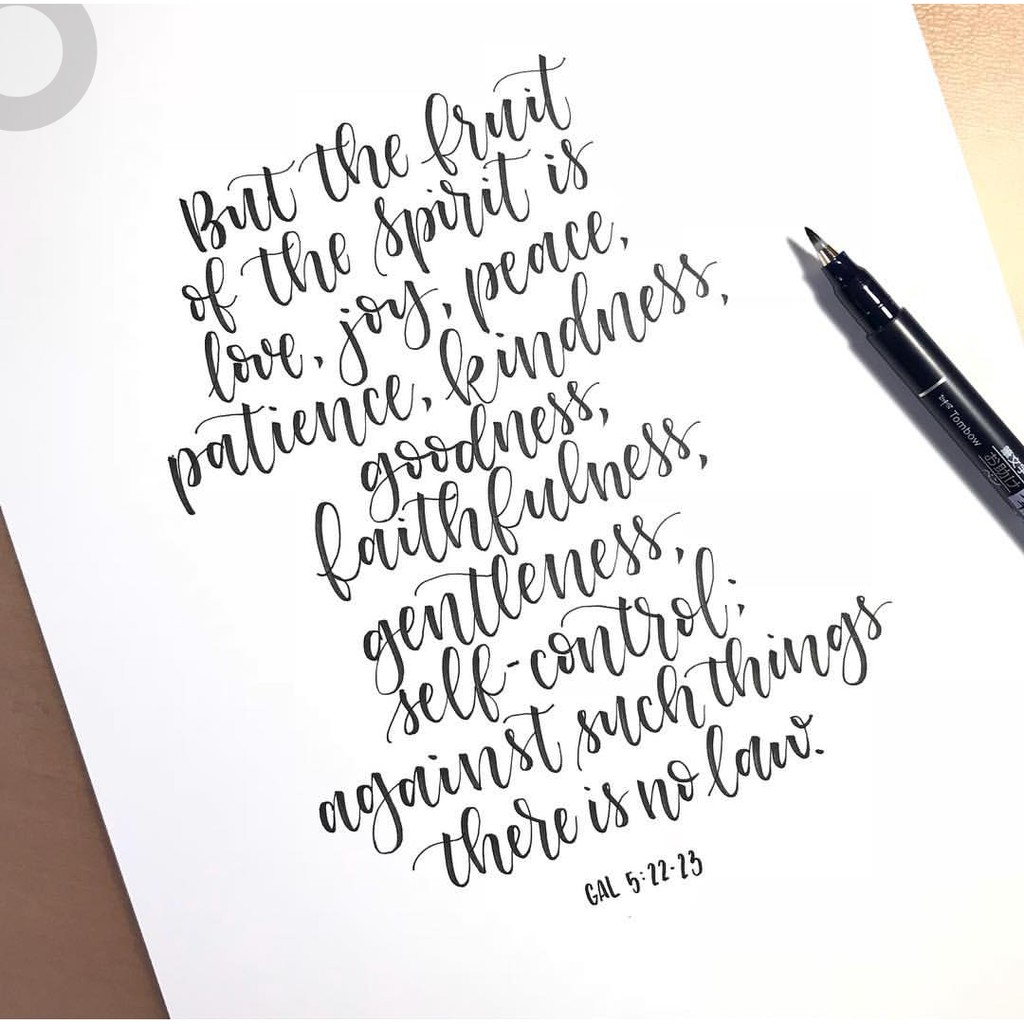 But the fruit
of the spirit is
love, joy, peace,
patience, kindness,
goodness,
faithfulness,
gentleness,
self-control;
against such things
there is no law.
GAL 5:22-23
Tombow
筆文字
お助け
ペン